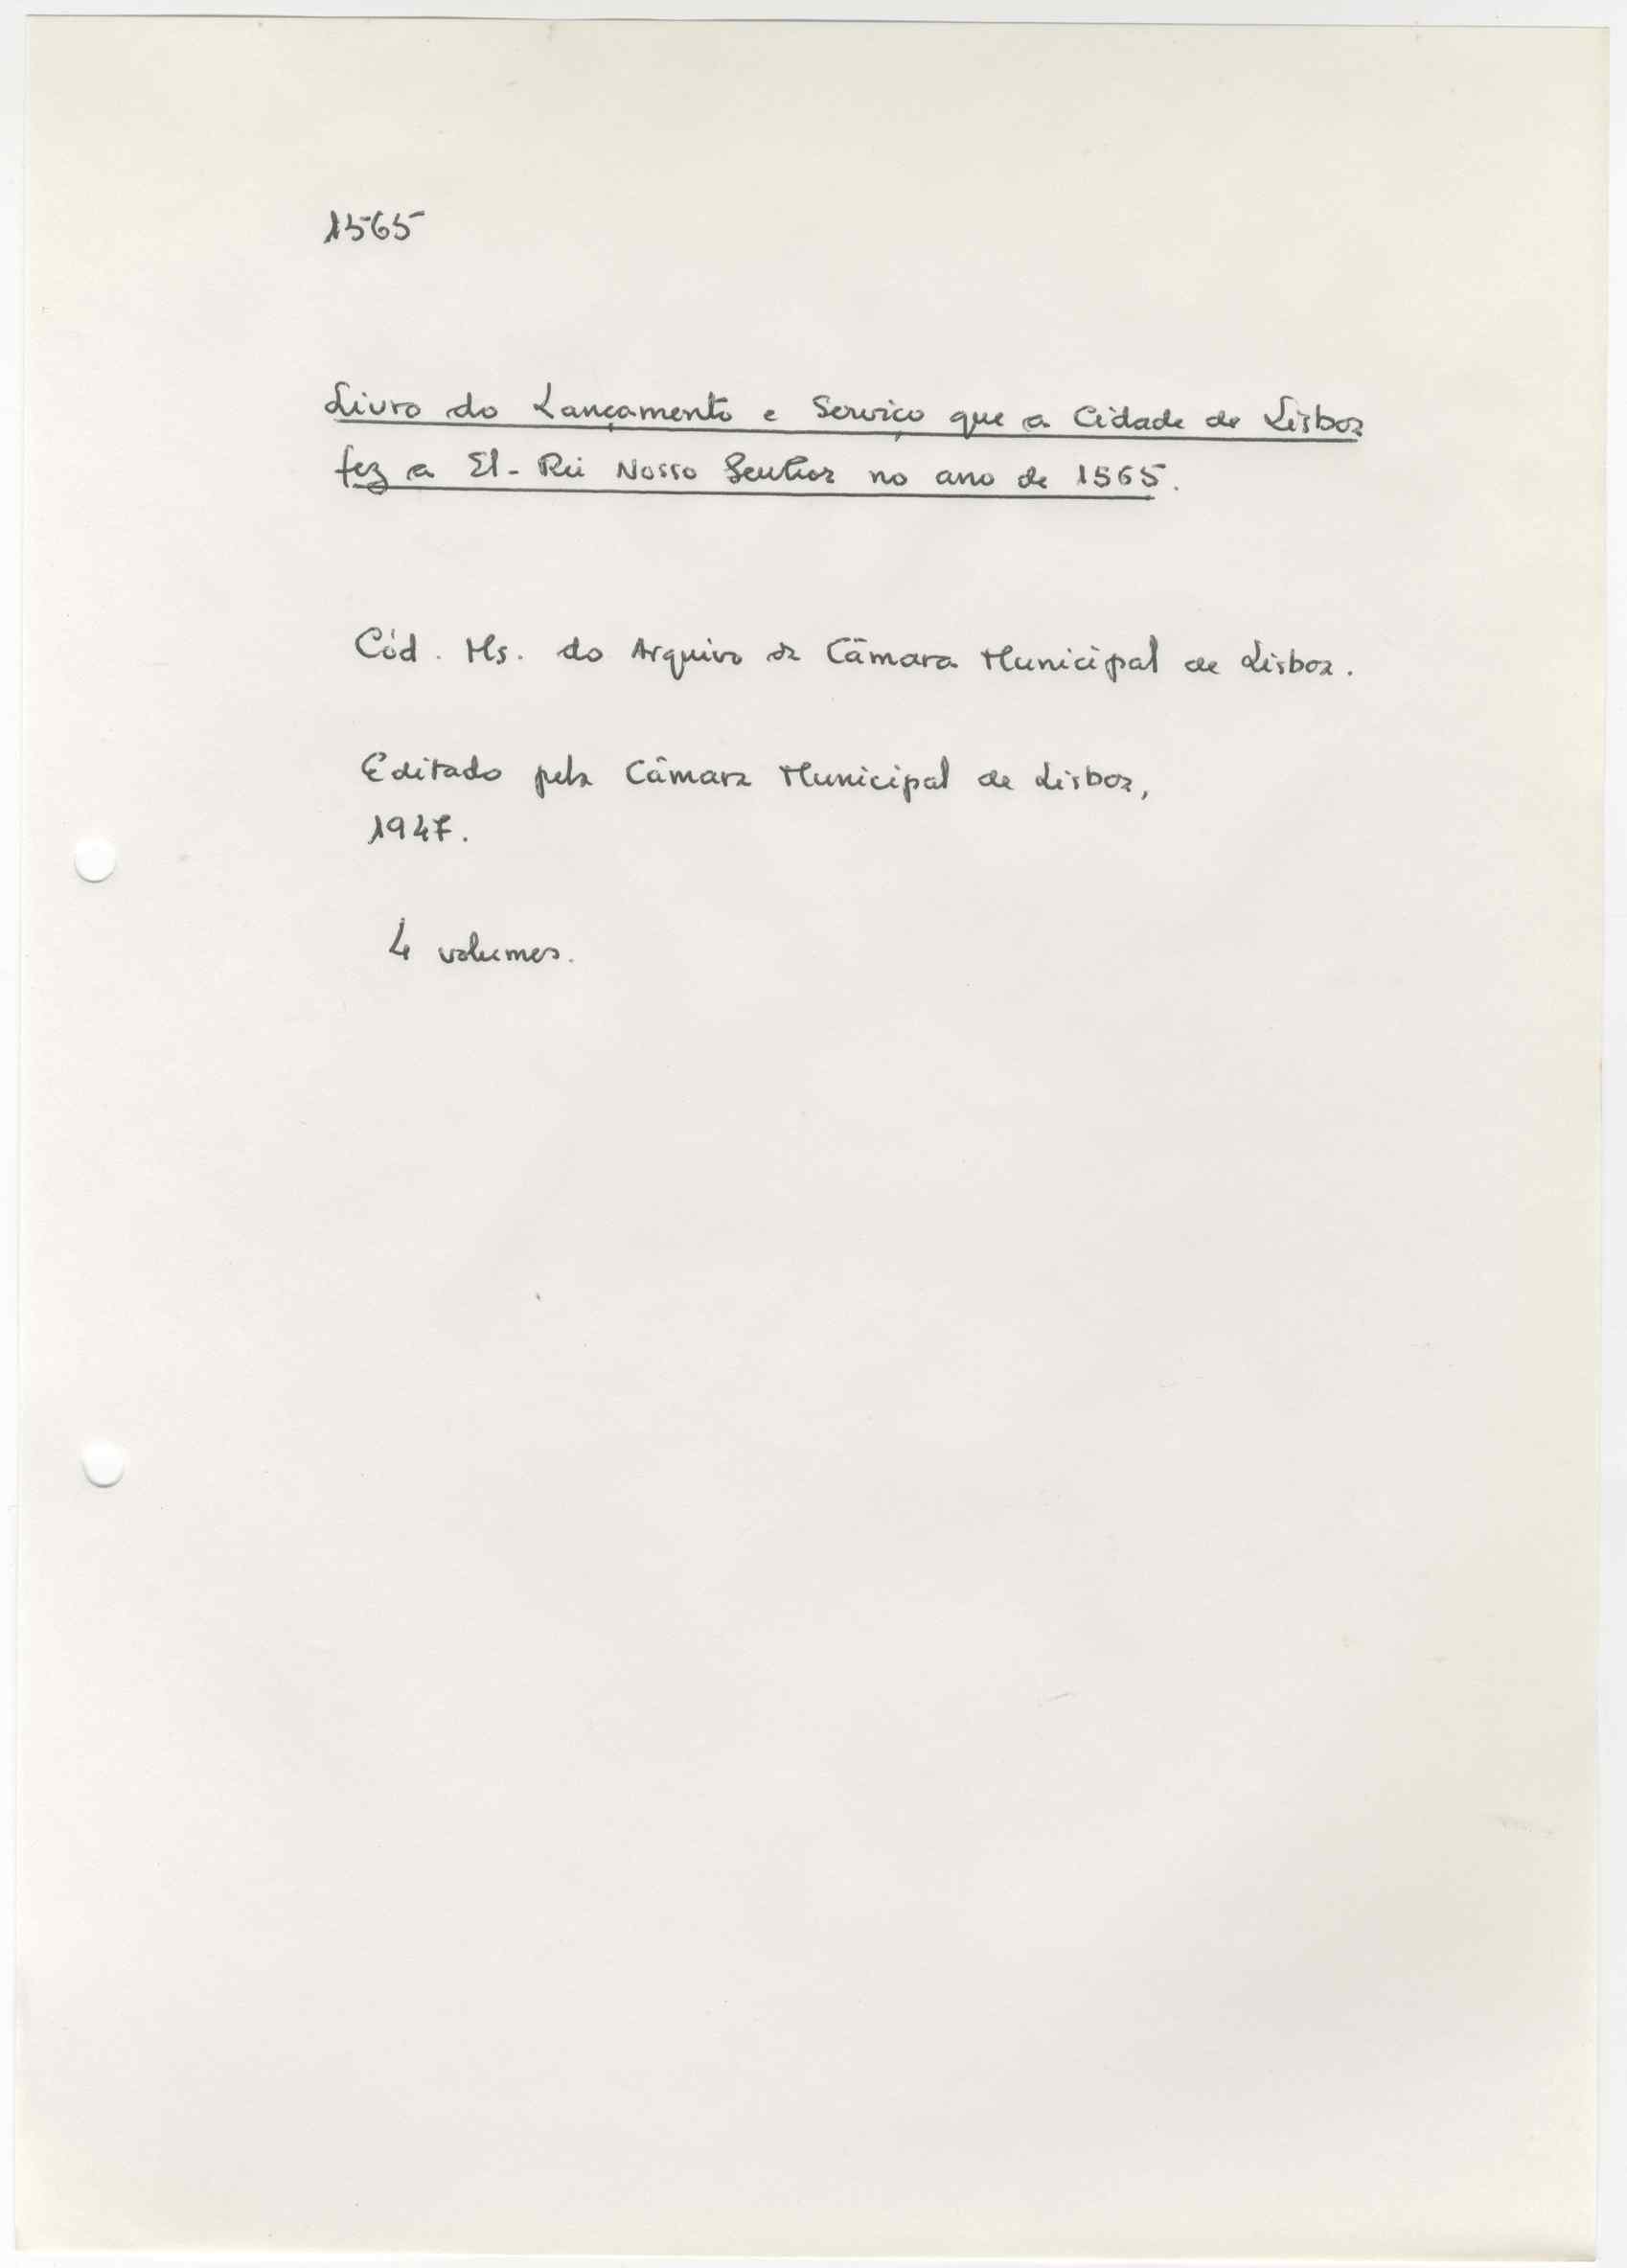 1565
Livro do Lançamento e Serviço que a Cidade de Lisboa
fez a El-Rei Nosso Senhor no ano de 1565.
Cód. Ms. do Arquivo da Câmara Municipal de Lisboa.
Editado pela Câmara Municipal de Lisboa,
1947.
4 volumes.